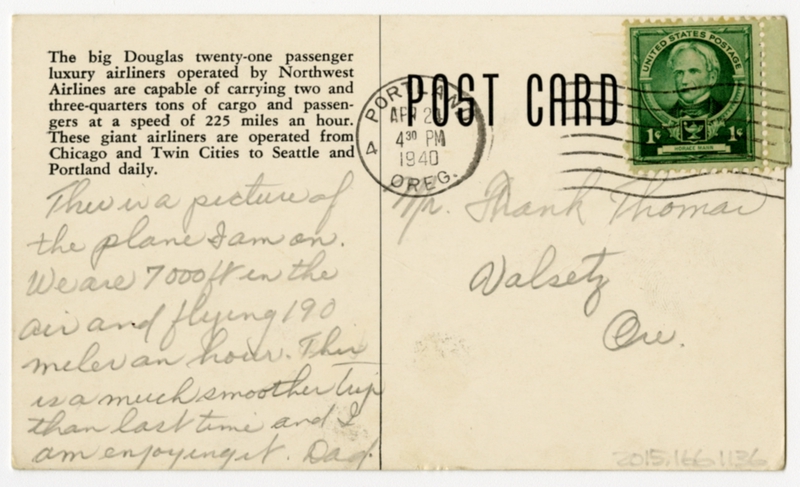 The big Douglas twenty-one passenger
luxury airliners operated by Northwest
Airlines are capable of carrying two and
three-quarters tons of cargo and passen-
gers at a speed of 225 miles an hour.
These giant airliners are operated from
Chicago and Twin Cities to Seattle and
Portland daily.
This is a picture of
the plane I am on.
We are 7000 ft in the
air and flying 190
miles an hour. This
is a much smoother trip
than last time and I
am enjoying it. Dad.
POST CARD
PORTLAND
APR 2
4 30 PM
1940
OREG.
4
UNITED STATES POSTAGE
1¢ 1¢
HORACE MANN
Mr. Frank Thomas
Valsetz
Ore.
2015.166.1136